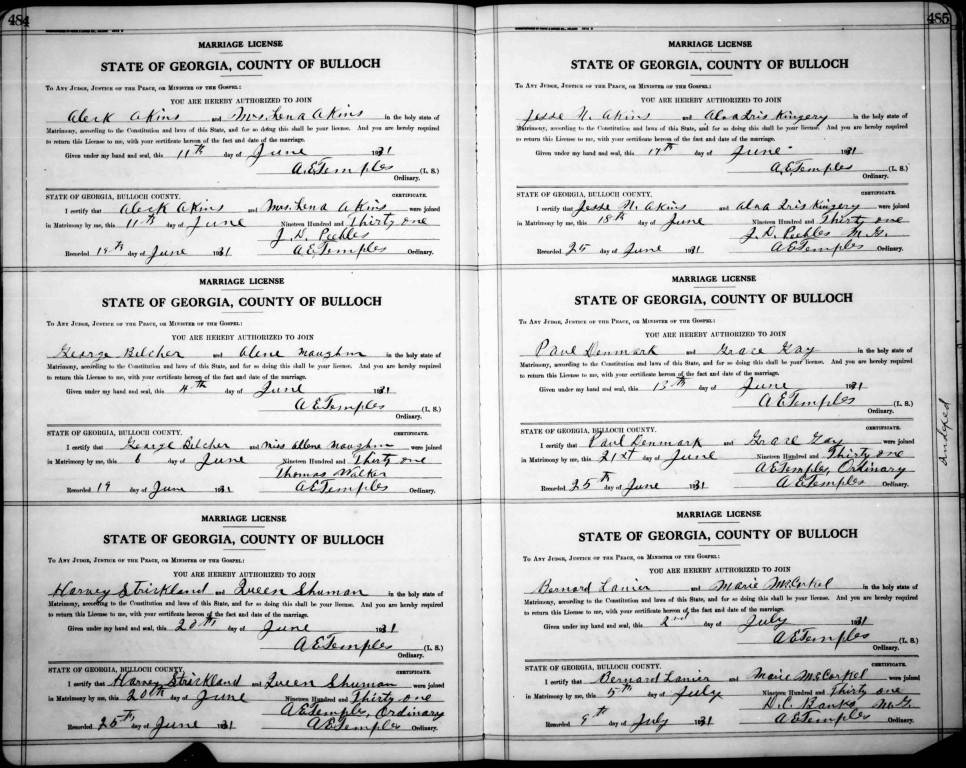 484
MARRIAGE LICENSE
STATE OF GEORGIA, COUNTY OF BULLOCH
To Any Judge, Justice of the Peace, or Minister of the Gospel:
YOU ARE HEREBY AUTHORIZED TO JOIN
Aleck Akins and Mrs. Lena Akins in the holy state of
Matrimony, according to the Constitution and laws of this State, and for so doing this shall be your license. And you are hereby required
to return this License to me, with your certificate hereon of the fact and date of the marriage.
Given under my hand and seal, this 11th day of June 1931
A.E. Temples (L. S.)
Ordinary.
STATE OF GEORGIA, BULLOCH COUNTY. CERTIFICATE.
I certify that Aleck Akins and Mrs. Lena Akins were joined
in Matrimony by me, this 11th day of June Nineteen Hundred and Thirty one
J. D. Peebles
Recorded 19th day of June 1931 A.E. Temples Ordinary.
MARRIAGE LICENSE
STATE OF GEORGIA, COUNTY OF BULLOCH
To Any Judge, Justice of the Peace, or Minister of the Gospel:
YOU ARE HEREBY AUTHORIZED TO JOIN
George Belcher and Alene in the holy state of
Matrimony, according to the Constitution and laws of this State, and for so doing this shall be your license. And you are hereby required
to return this License to me, with your certificate hereon of the fact and date of the marriage.
Given under my hand and seal, this day of June 1931
A E Temples (L. S.)
Ordinary.
STATE OF GEORGIA, BULLOCH COUNTY. CERTIFICATE.
I certify that George Belcher and Miss Allene were joined
in Matrimony by me, this 6 day of June Nineteen Hundred and Thirty one
Thomas Walker
Recorded 19 day of June 1931 A E Temples Ordinary.
MARRIAGE LICENSE
STATE OF GEORGIA, COUNTY OF BULLOCH
To Any Judge, Justice of the Peace, or Minister of the Gospel:
YOU ARE HEREBY AUTHORIZED TO JOIN
Harvey Strickland and Queen Shuman in the holy state of
Matrimony, according to the Constitution and laws of this State, and for so doing this shall be your license. And you are hereby required
to return this License to me, with your certificate hereon of the fact and date of the marriage.
Given under my hand and seal, this 20th day of June 1931
A E Temples (L. S.)
Ordinary.
STATE OF GEORGIA, BULLOCH COUNTY. CERTIFICATE.
I certify that Harvey Strickland and Queen Shuman were joined
in Matrimony by me, this 20th day of June Nineteen Hundred and Thirty one
A E Temples, Ordinary
Recorded 25th day of June 1931 A E Temples Ordinary.
485
MARRIAGE LICENSE
STATE OF GEORGIA, COUNTY OF BULLOCH
To Any Judge, Justice of the Peace, or Minister of the Gospel:
YOU ARE HEREBY AUTHORIZED TO JOIN
Jesse N. Akins and Alva Iris Kingery in the holy state of
Matrimony, according to the Constitution and laws of this State, and for so doing this shall be your license. And you are hereby required
to return this License to me, with your certificate hereon of the fact and date of the marriage.
Given under my hand and seal, this 17th day of June 1931
A.E. Temples (L. S.)
Ordinary.
STATE OF GEORGIA, BULLOCH COUNTY. CERTIFICATE.
I certify that Jesse N. Akins and Alva Iris Kingery were joined
in Matrimony by me, this 18th day of June Nineteen Hundred and Thirty one
J. D. Peebles M. G.
Recorded 25 day of June 1931 A E Temples Ordinary.
MARRIAGE LICENSE
STATE OF GEORGIA, COUNTY OF BULLOCH
To Any Judge, Justice of the Peace, or Minister of the Gospel:
YOU ARE HEREBY AUTHORIZED TO JOIN
Paul Denmark and Grace Gay in the holy state of
Matrimony, according to the Constitution and laws of this State, and for so doing this shall be your license. And you are hereby required
to return this License to me, with your certificate hereon of the fact and date of the marriage.
Given under my hand and seal, this 13th day of June 1931
A E Temples (L. S.)
Ordinary.
STATE OF GEORGIA, BULLOCH COUNTY. CERTIFICATE.
I certify that Paul Denmark and Grace Gay were joined
in Matrimony by me, this 21st day of June Nineteen Hundred and Thirty one
A E Temples, Ordinary
Recorded 25th day of June 1931 A E Temples Ordinary.
Indexed
MARRIAGE LICENSE
STATE OF GEORGIA, COUNTY OF BULLOCH
To Any Judge, Justice of the Peace, or Minister of the Gospel:
YOU ARE HEREBY AUTHORIZED TO JOIN
Bernard Lanier and Marie McCorkel in the holy state of
Matrimony, according to the Constitution and laws of this State, and for so doing this shall be your license. And you are hereby required
to return this License to me, with your certificate hereon of the fact and date of the marriage.
Given under my hand and seal, this 2nd day of July 1931
A E Temples (L. S.)
Ordinary.
STATE OF GEORGIA, BULLOCH COUNTY. CERTIFICATE.
I certify that Bernard Lanier and Marie McCorkel were joined
in Matrimony by me, this 5th day of July Nineteen Hundred and Thirty one
D. C. Banks M. G.
Recorded 9th day of July 1931 A E Temples Ordinary.